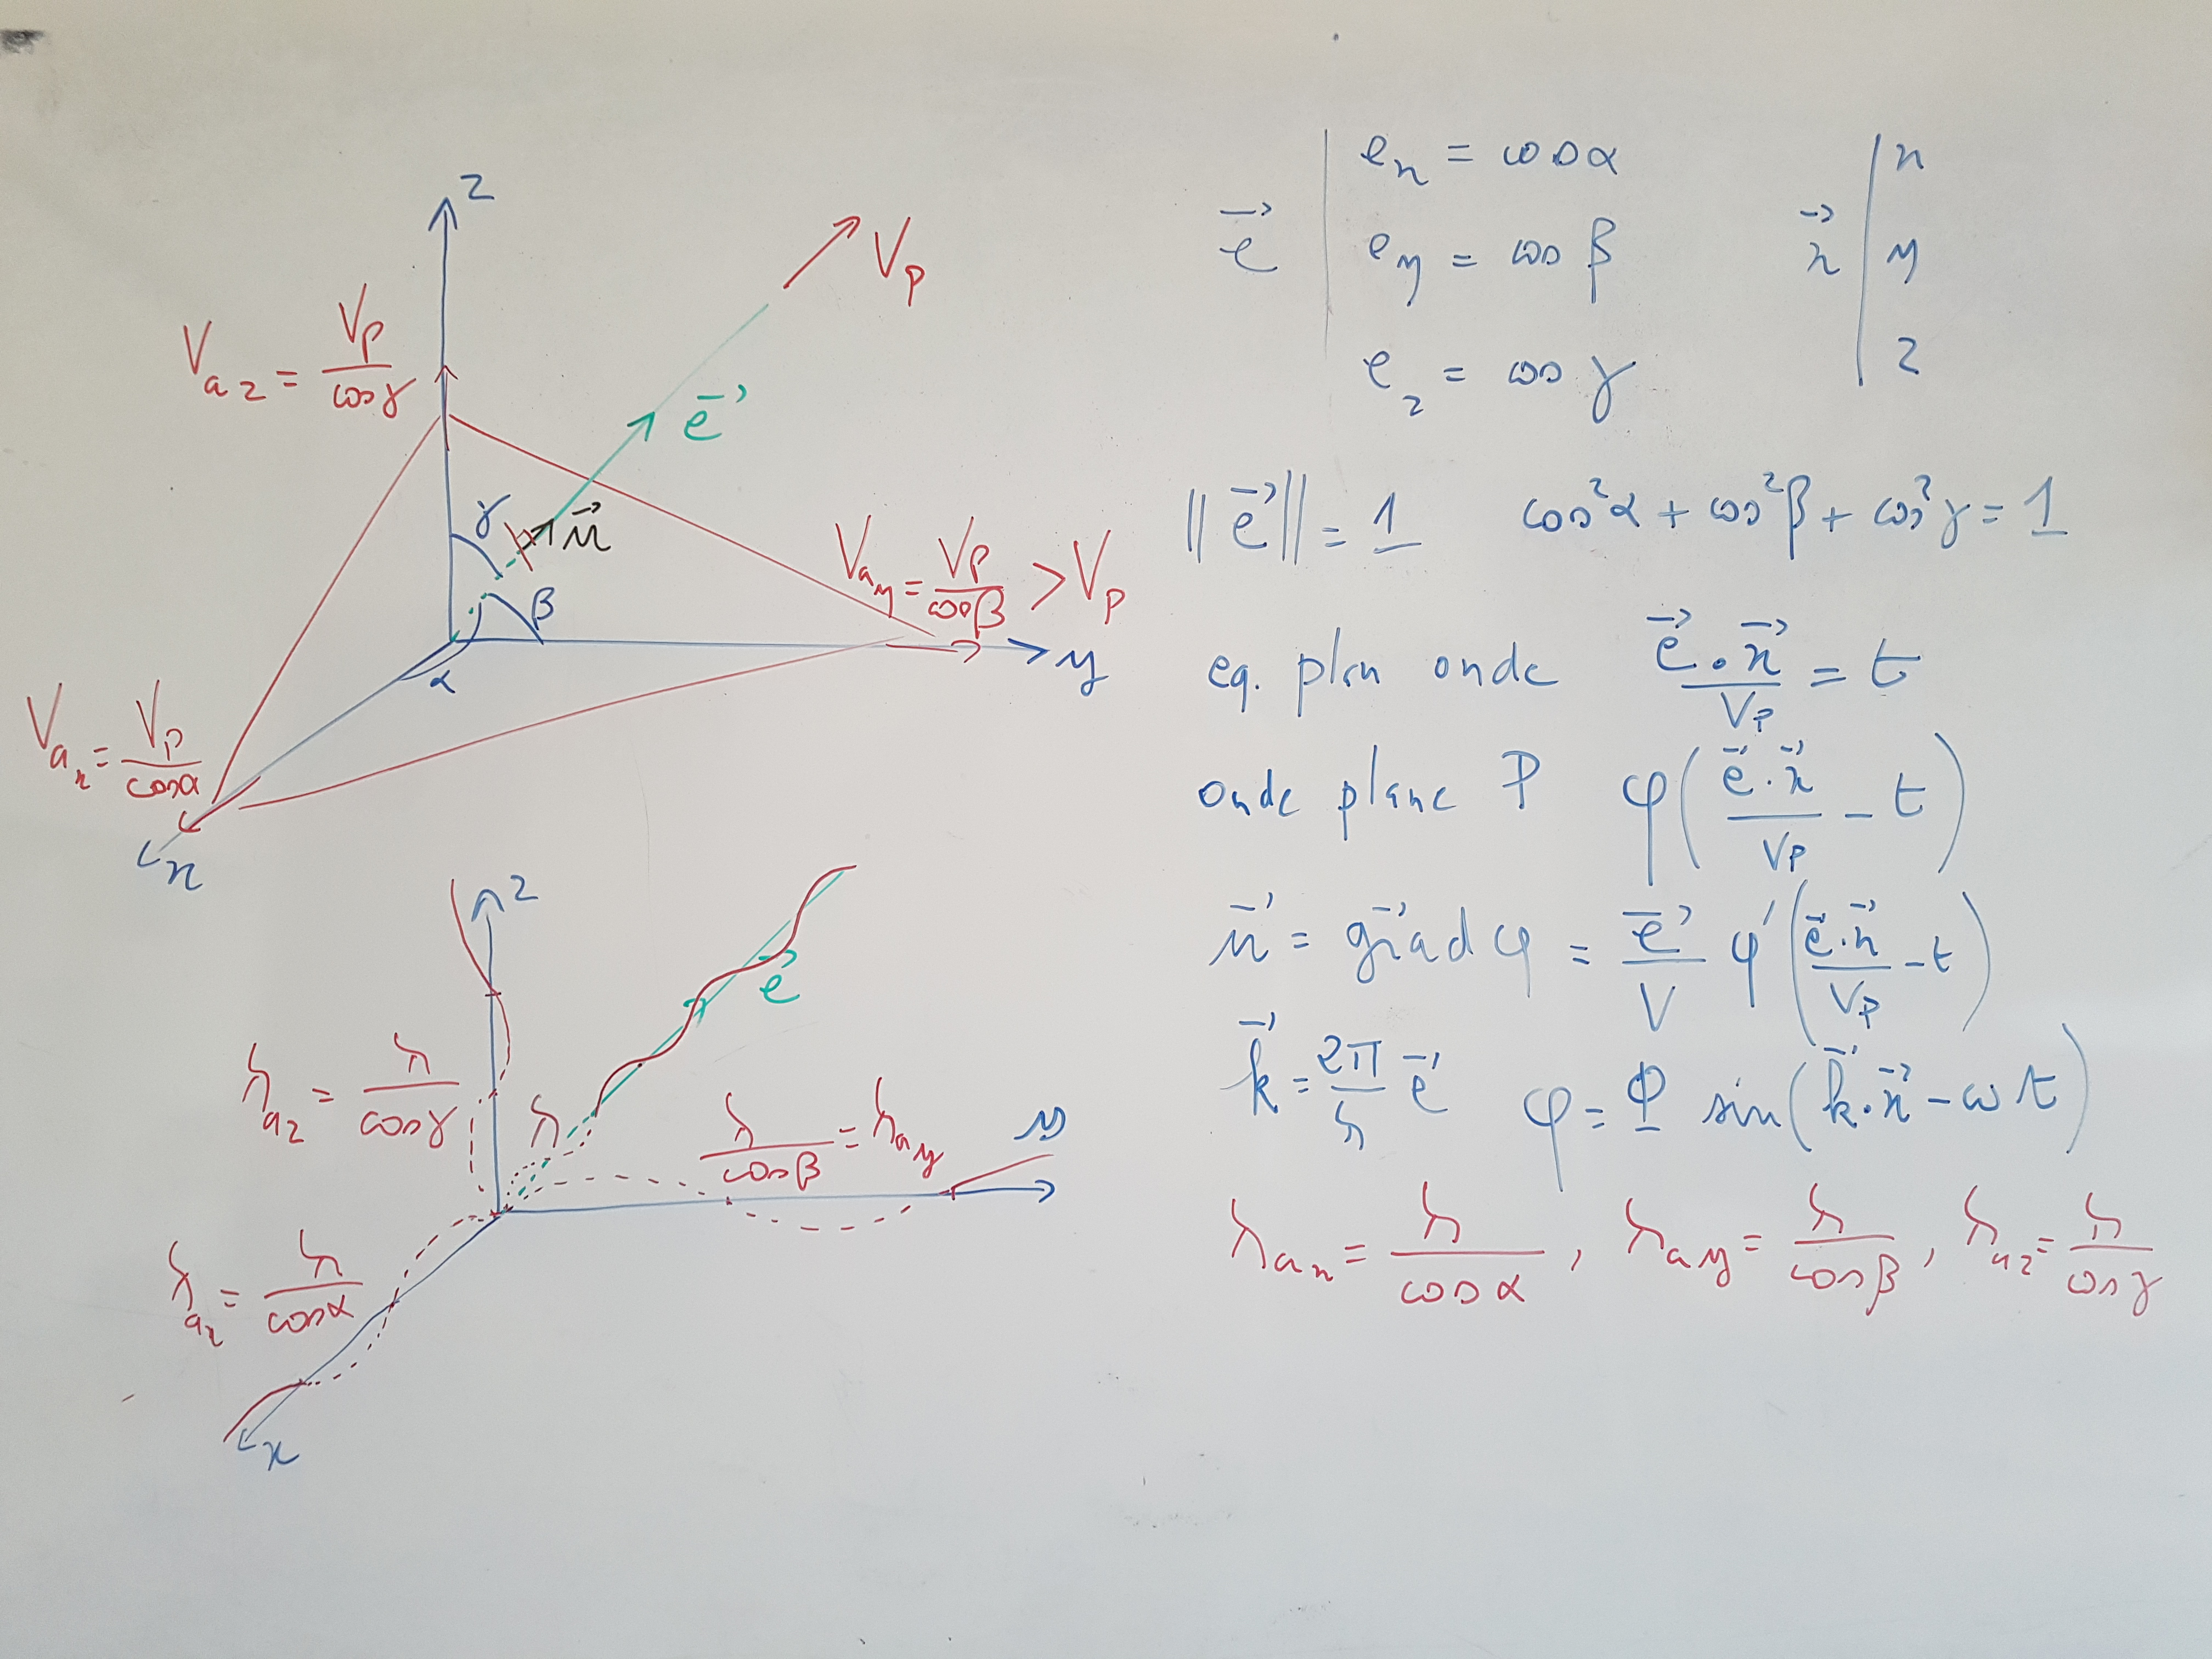 z
V⃗p
V_az = Vp / cos γ
e⃗
γ
u⃗
V_ay = Vp / cos β > Vp
β
α
y
V_ax = Vp / cos α
x
z
e⃗
λ_az = λ / cos γ
λ
λ / cos β = λ_ay
y
λ_ax = λ / cos α
x
e⃗ | e_x = cos α
e_y = cos β
e_z = cos γ
x⃗ | x
y
z
‖e⃗‖ = 1 cos²α + cos²β + cos²γ = 1
eq. plan onde e⃗ . x⃗ / Vp = t
onde plane P φ( e⃗ . x⃗ / Vp − t )
u⃗ = grad⃗ φ = e⃗ / V φ'( e⃗ . x⃗ / Vp − t )
k⃗ = 2π / λ e⃗ φ = Φ sin( k⃗ . x⃗ − ω t )
λ_ax = λ / cos α , λ_ay = λ / cos β , λ_az = λ / cos γ